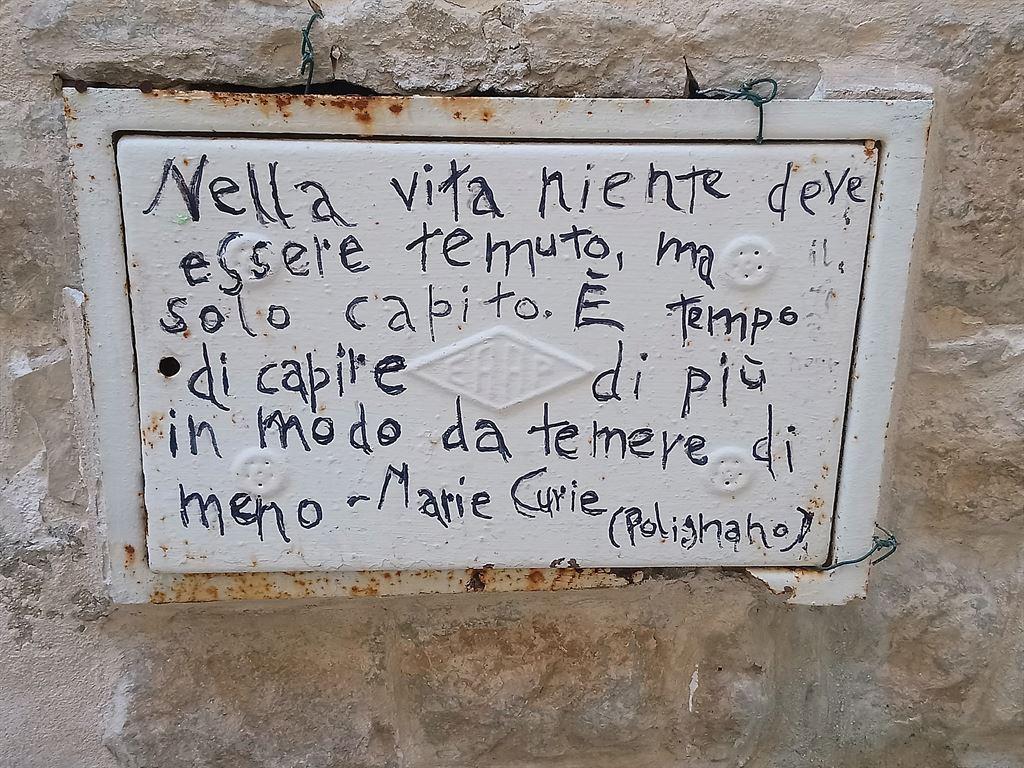 Nella vita niente deve
essere temuto, ma
solo capito. È tempo
di capire di più
EAAP
in modo da temere di
meno - Marie Curie
(Polignano)